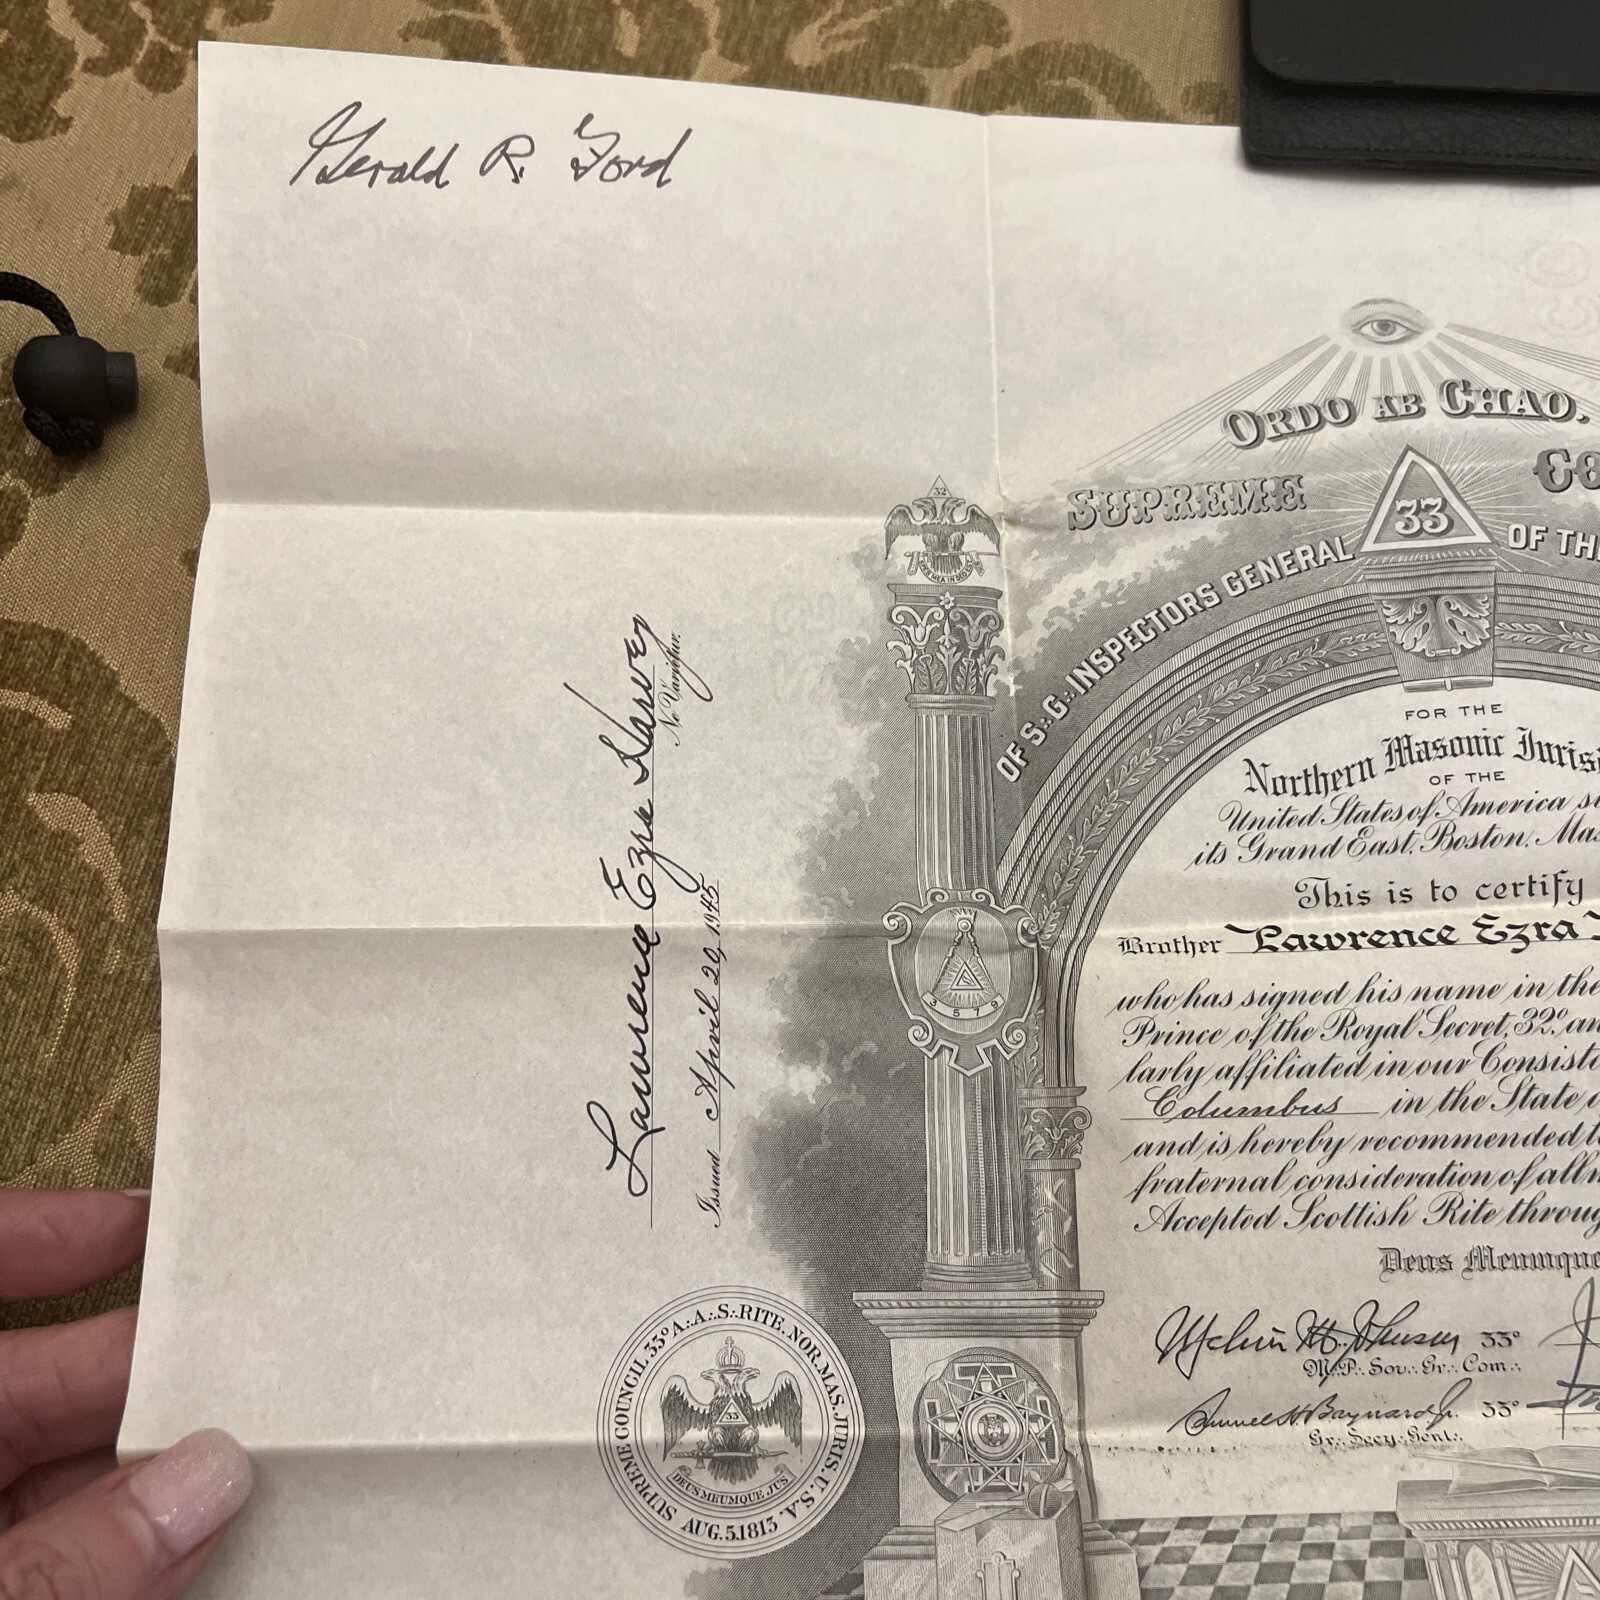 Gerald R. Ford
ORDO AB CHAO.
SUPREME
33
OF S∴G∴INSPECTORS GENERAL
OF TH
32
FOR THE
Northern Masonic Juris
OF THE
United States of America
its Grand East, Boston, Mas
This is to certify
Brother Lawrence Ezra
who has signed his name in the
Prince of the Royal Secret, 32° an
larly affiliated in our Consisto
Columbus in the State
and is hereby recommended
fraternal consideration of all
Accepted Scottish Rite throug
Deus Meumque
Melvin M. Johnson 33°
M∴P∴ Sov∴ Gr∴ Com∴
Samuel H. Baynard Jr. 33°
Gr∴ Secy∴ Genl∴
Lawrence Ezra Harvey
Ne Varietur.
Issued April 20, 1945
3 5 7 9
SUPREME COUNCIL 33° A∴A∴S∴RITE. NOR.MAS.JURIS. U.S.A.
33
DEUS MEUMQUE JUS
AUG.5.1813